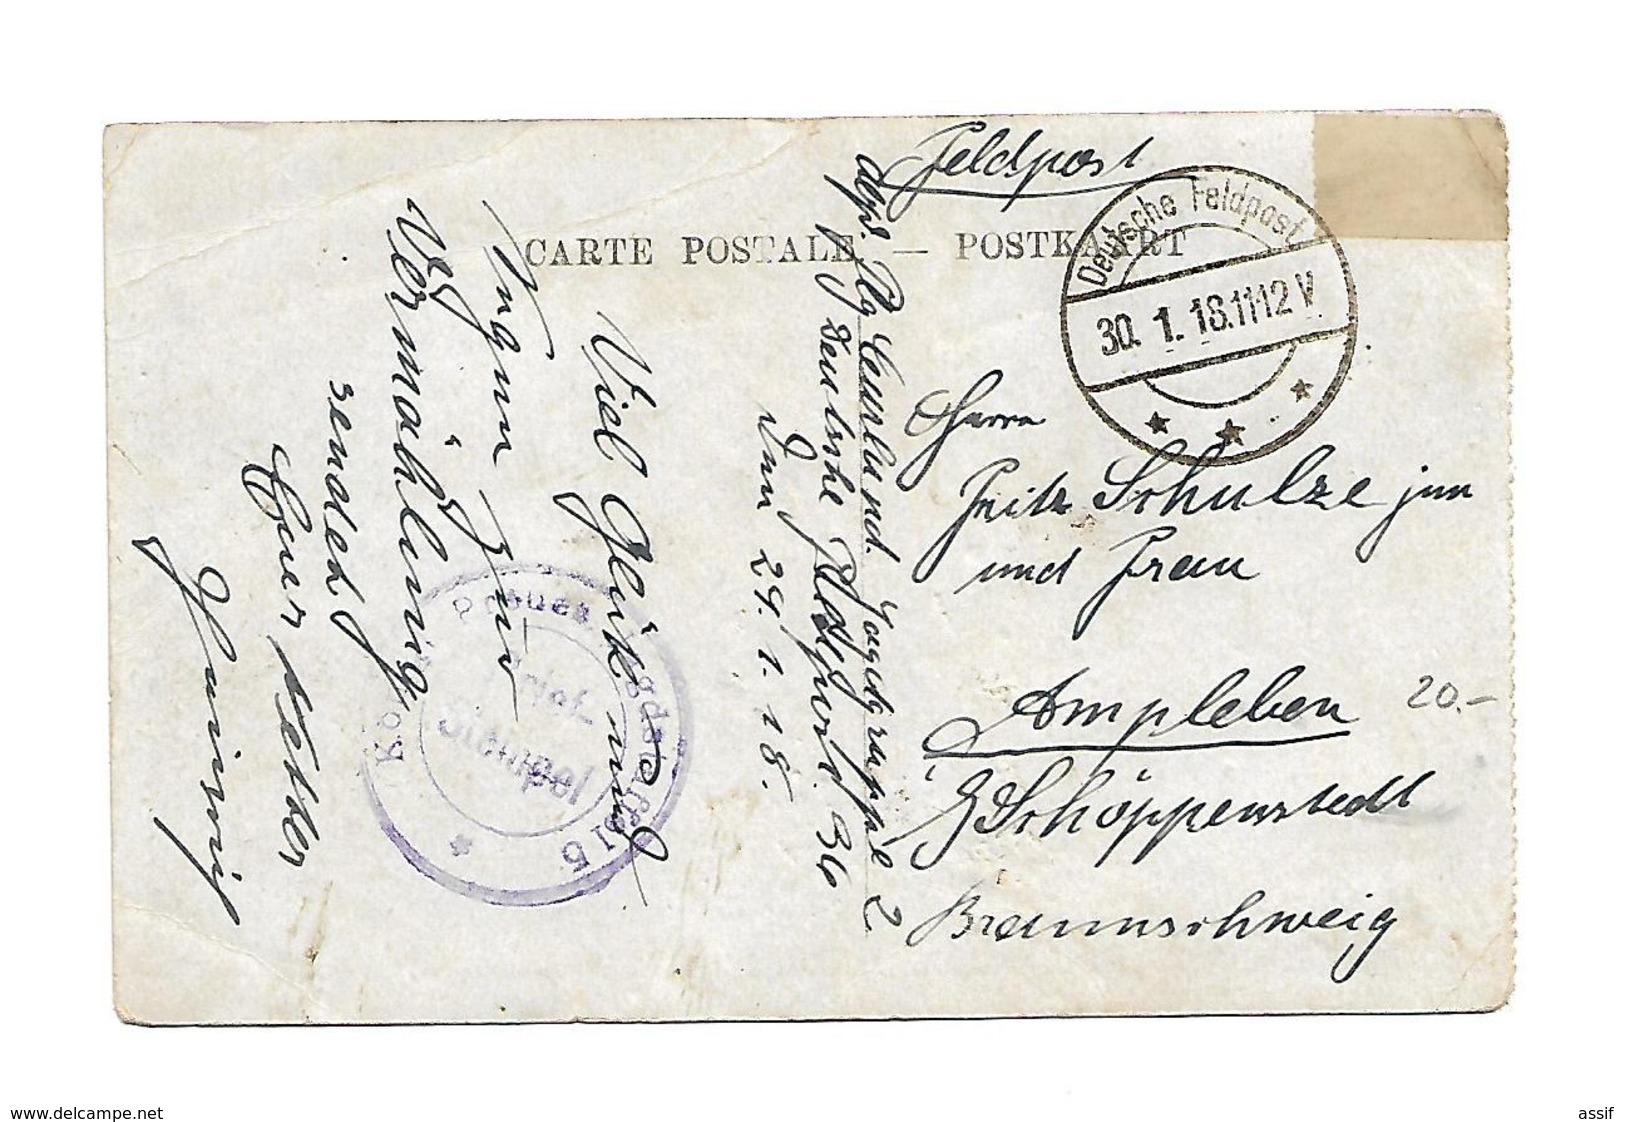 Feldpost
CARTE POSTALE. — POSTKAART
Deutsche Feldpost
30. 1. 18. 11 12 V
Herrn
Fritz Schulze jun
und Frau
Ampleben
Schöppenstedt
Braunschweig
20.-
2
Deutsche Feldpost. 36
Den 29. 1. 18.
Viel Glück und
zur
Vermählung
sendet
Euer Vetter
Brief-
Stempel
www.delcampe.net
assif